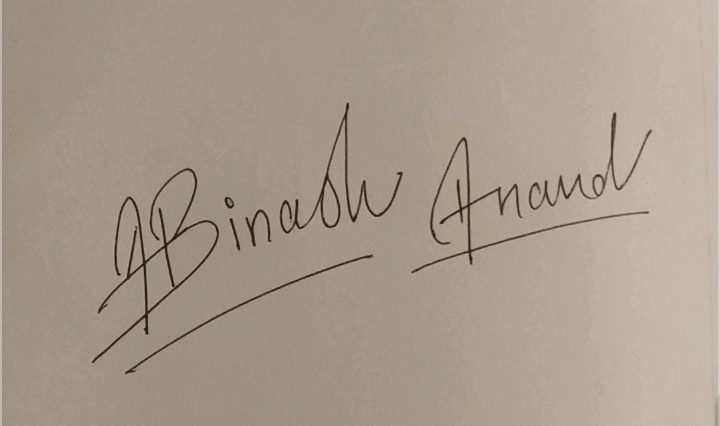 ABinash Anand